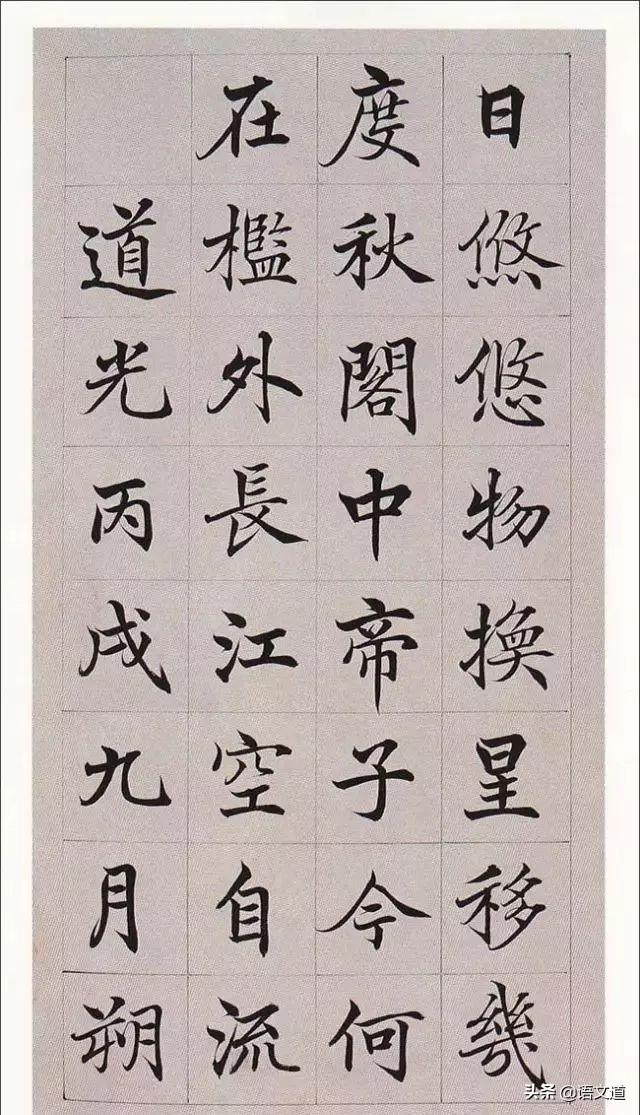 日悠悠物換星移幾
度秋閣中帝子今何
在檻外長江空自流
道光丙戌九月朔
头条 @语文道